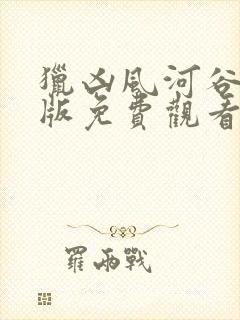 獵凶風河谷
版免費觀看
羅雨戰